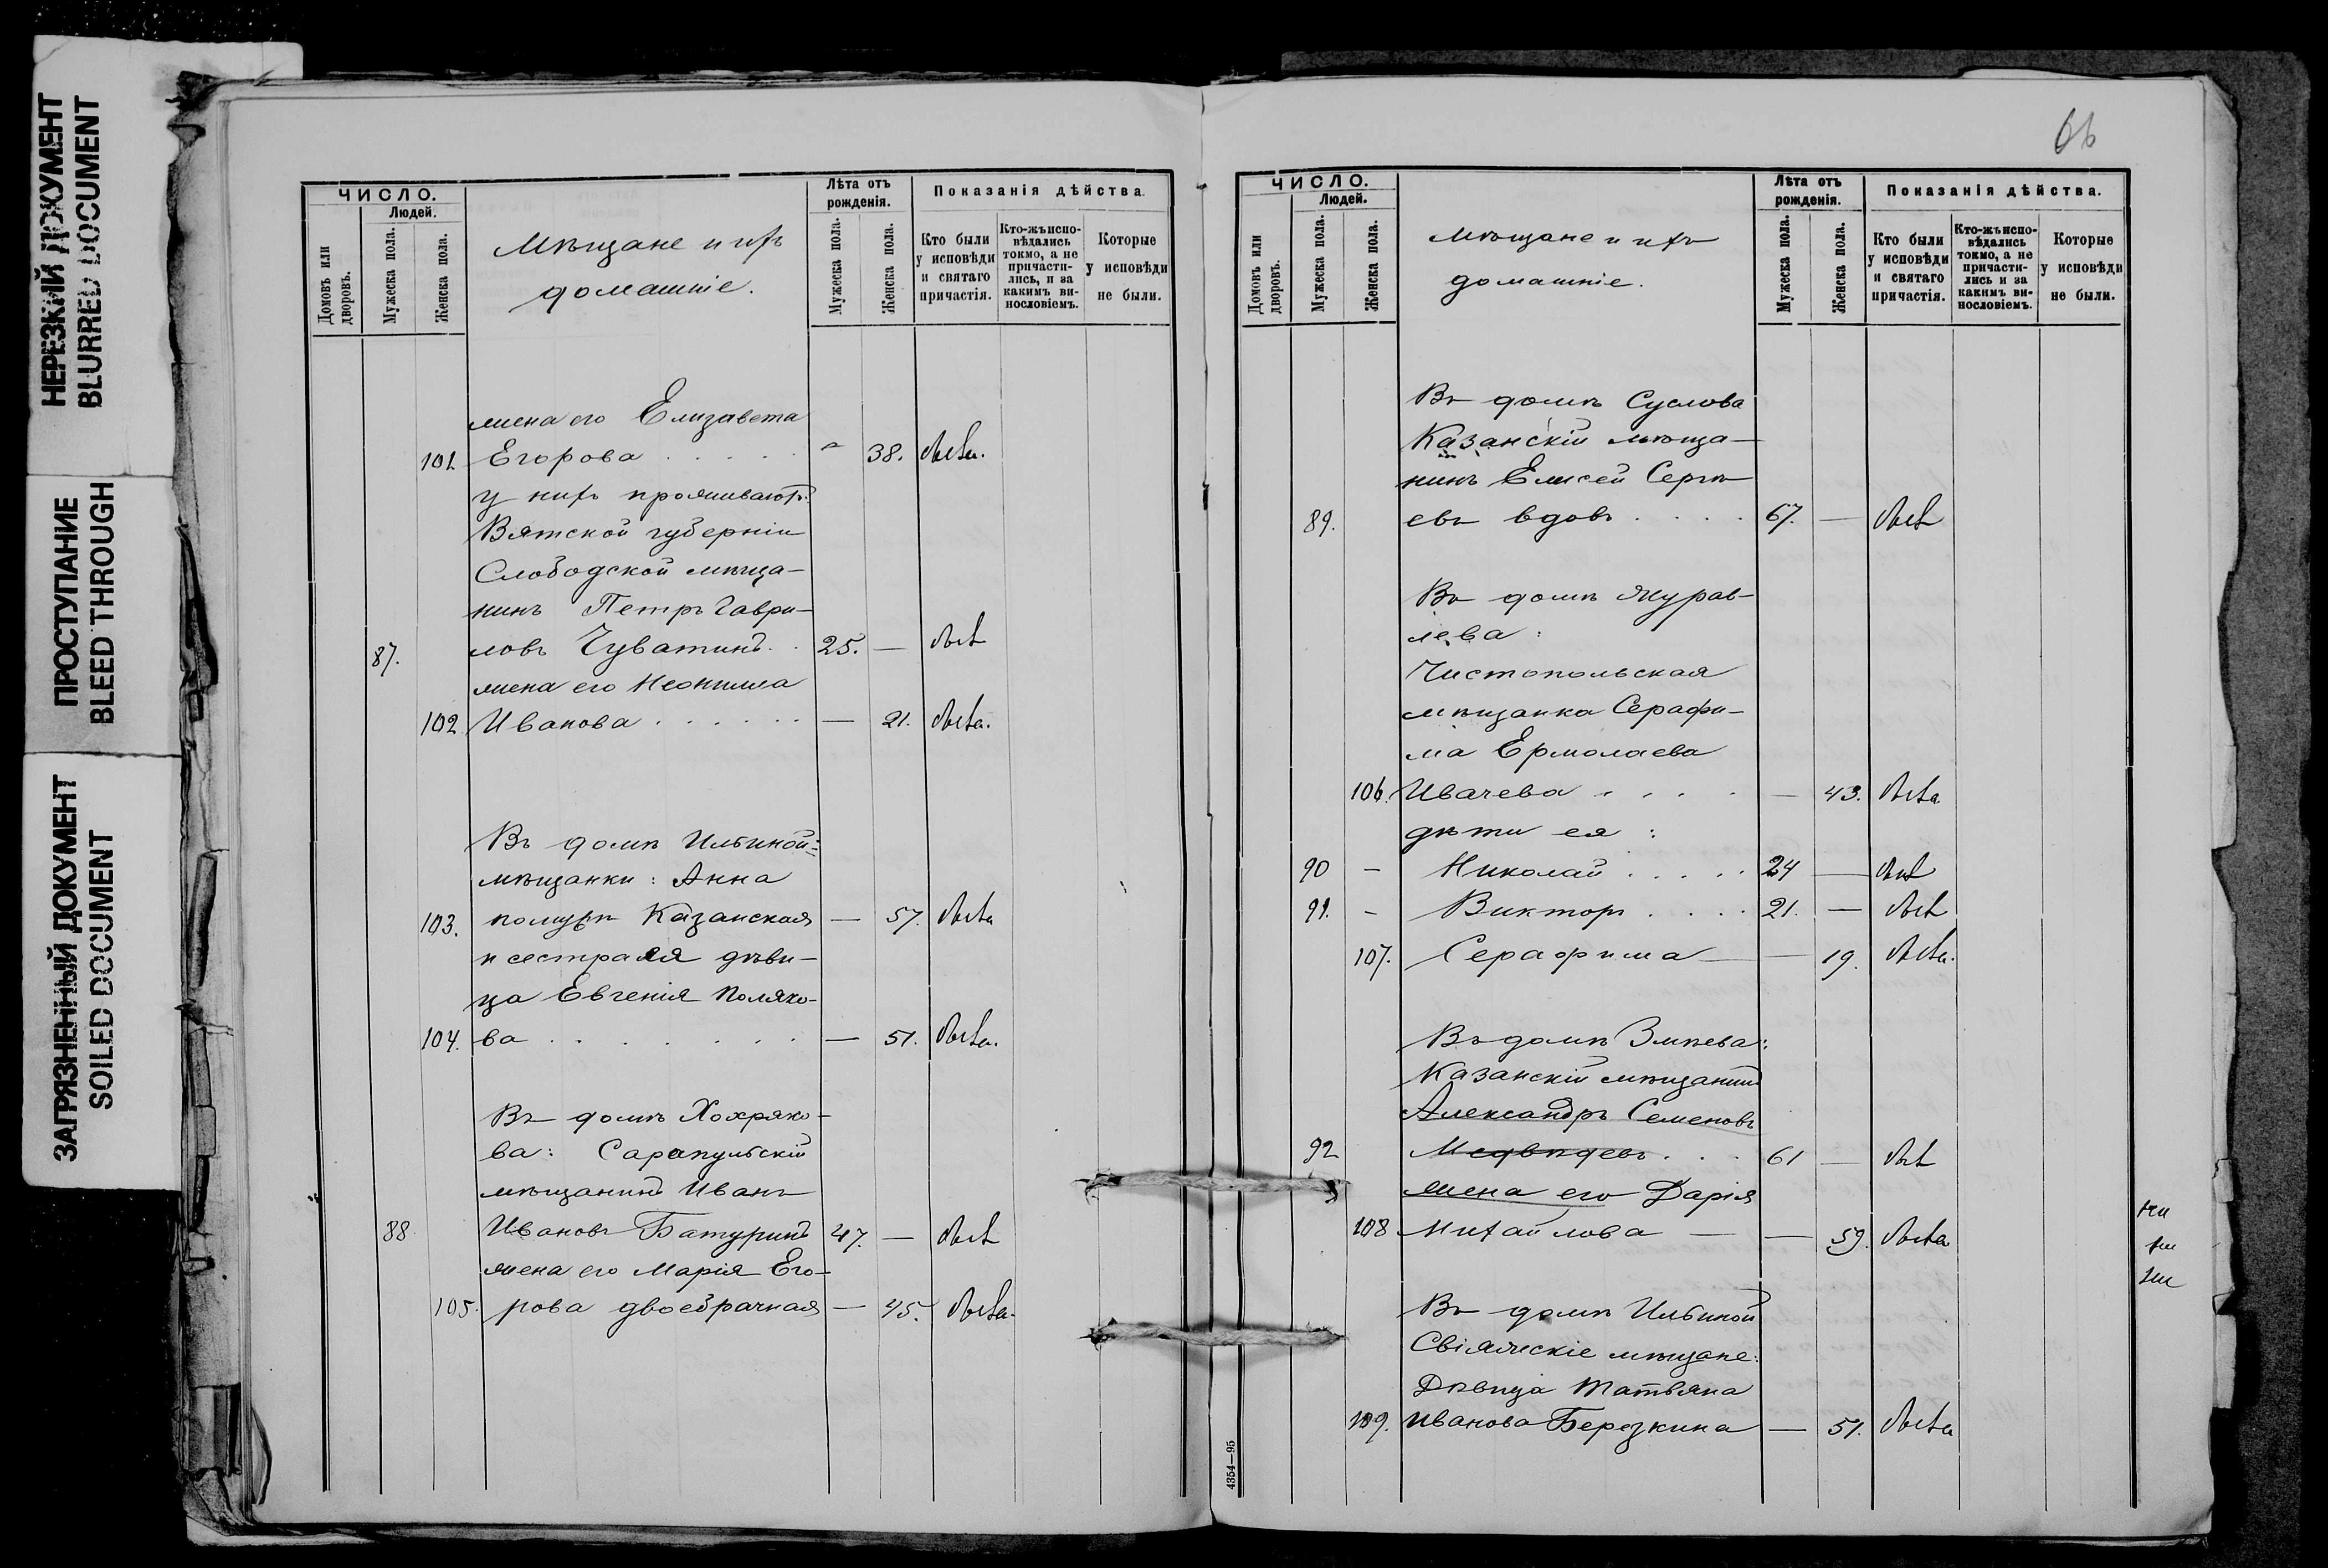 НЕРЕЗКИЙ ДОКУМЕНТ
BLURRED DOCUMENT
ПРОСТУПАНИЕ
BLEED THROUGH
ЗАГРЯЗНЕННЫЙ ДОКУМЕНТ
SOILED DOCUMENT
ЧИСЛО.
Людей.
Домовъ или дворовъ.
Мужеска пола.
Женска пола.
Мѣщане и ихъ
домашніе.
Лѣта отъ
рожденія.
Мужеска пола.
Женска пола.
Показанія дѣйства.
Кто были
у исповѣди
и святаго
причастія.
Кто-жъ испо-
вѣдались
токмо, а не
причасти-
лись, и за
какимъ ви-
нословіемъ.
Которые
у исповѣди
не были.
жена его Елизавета
101. Егорова . . . . . — 38. была.
у нихъ проживаютъ:
Вятской губерніи
Слободской мѣща-
нинъ Петръ Гаври-
87. ловъ Чуватинъ . . 25. — былъ
жена его Неонилла
102 Иванова . . . . . . — 21. была.
Въ домѣ Ильиной:
мѣщанки: Анна
103. Казанская — 57. была
и сестра ея дѣви-
ца Евгенія Поляко-
104. ва . . . . . . . — 51. была.
Въ домѣ Хохряко-
ва: Сарапульскій
мѣщанинъ Иванъ
88 Ивановъ Батуринъ 47. — былъ
жена его Марія Его-
105. рова двоебрачная — 45. была.
66
ЧИСЛО.
Людей.
Домовъ или дворовъ.
Мужеска пола.
Женска пола.
Мѣщане и ихъ
домашніе.
Лѣта отъ
рожденія.
Мужеска пола.
Женска пола.
Показанія дѣйства.
Кто были
у исповѣди
и святаго
причастія.
Кто-жъ испо-
вѣдались
токмо, а не
причасти-
лись и за
какимъ ви-
нословіемъ.
Которые
у исповѣди
не были.
Въ домѣ Суслова
Казанскій мѣща-
нинъ Елисей Сергѣ-
89. евъ вдовъ . . . . 67. — былъ
Въ домѣ Журав-
лева:
Чистопольская
мѣщанка Серафи-
ма Ермолаева
106. Ивачева . . . . — 43. была
дѣти ея :
90 - Николай . . . . . 24 — былъ
91. - Викторъ . . . . 21. — былъ
107. Серафима — — 19. была.
Въ домѣ Змѣева:
Казанскій мѣщанинъ
Александръ Семеновъ
92 Медвѣдевъ . . . 61 — былъ
жена его Дарія
108 Михайлова — — 59. была
Въ домѣ Ильиной
Свіяжскіе мѣщане:
Дѣвица Татьяна
109. Иванова Березкина — 51. была
4354—95